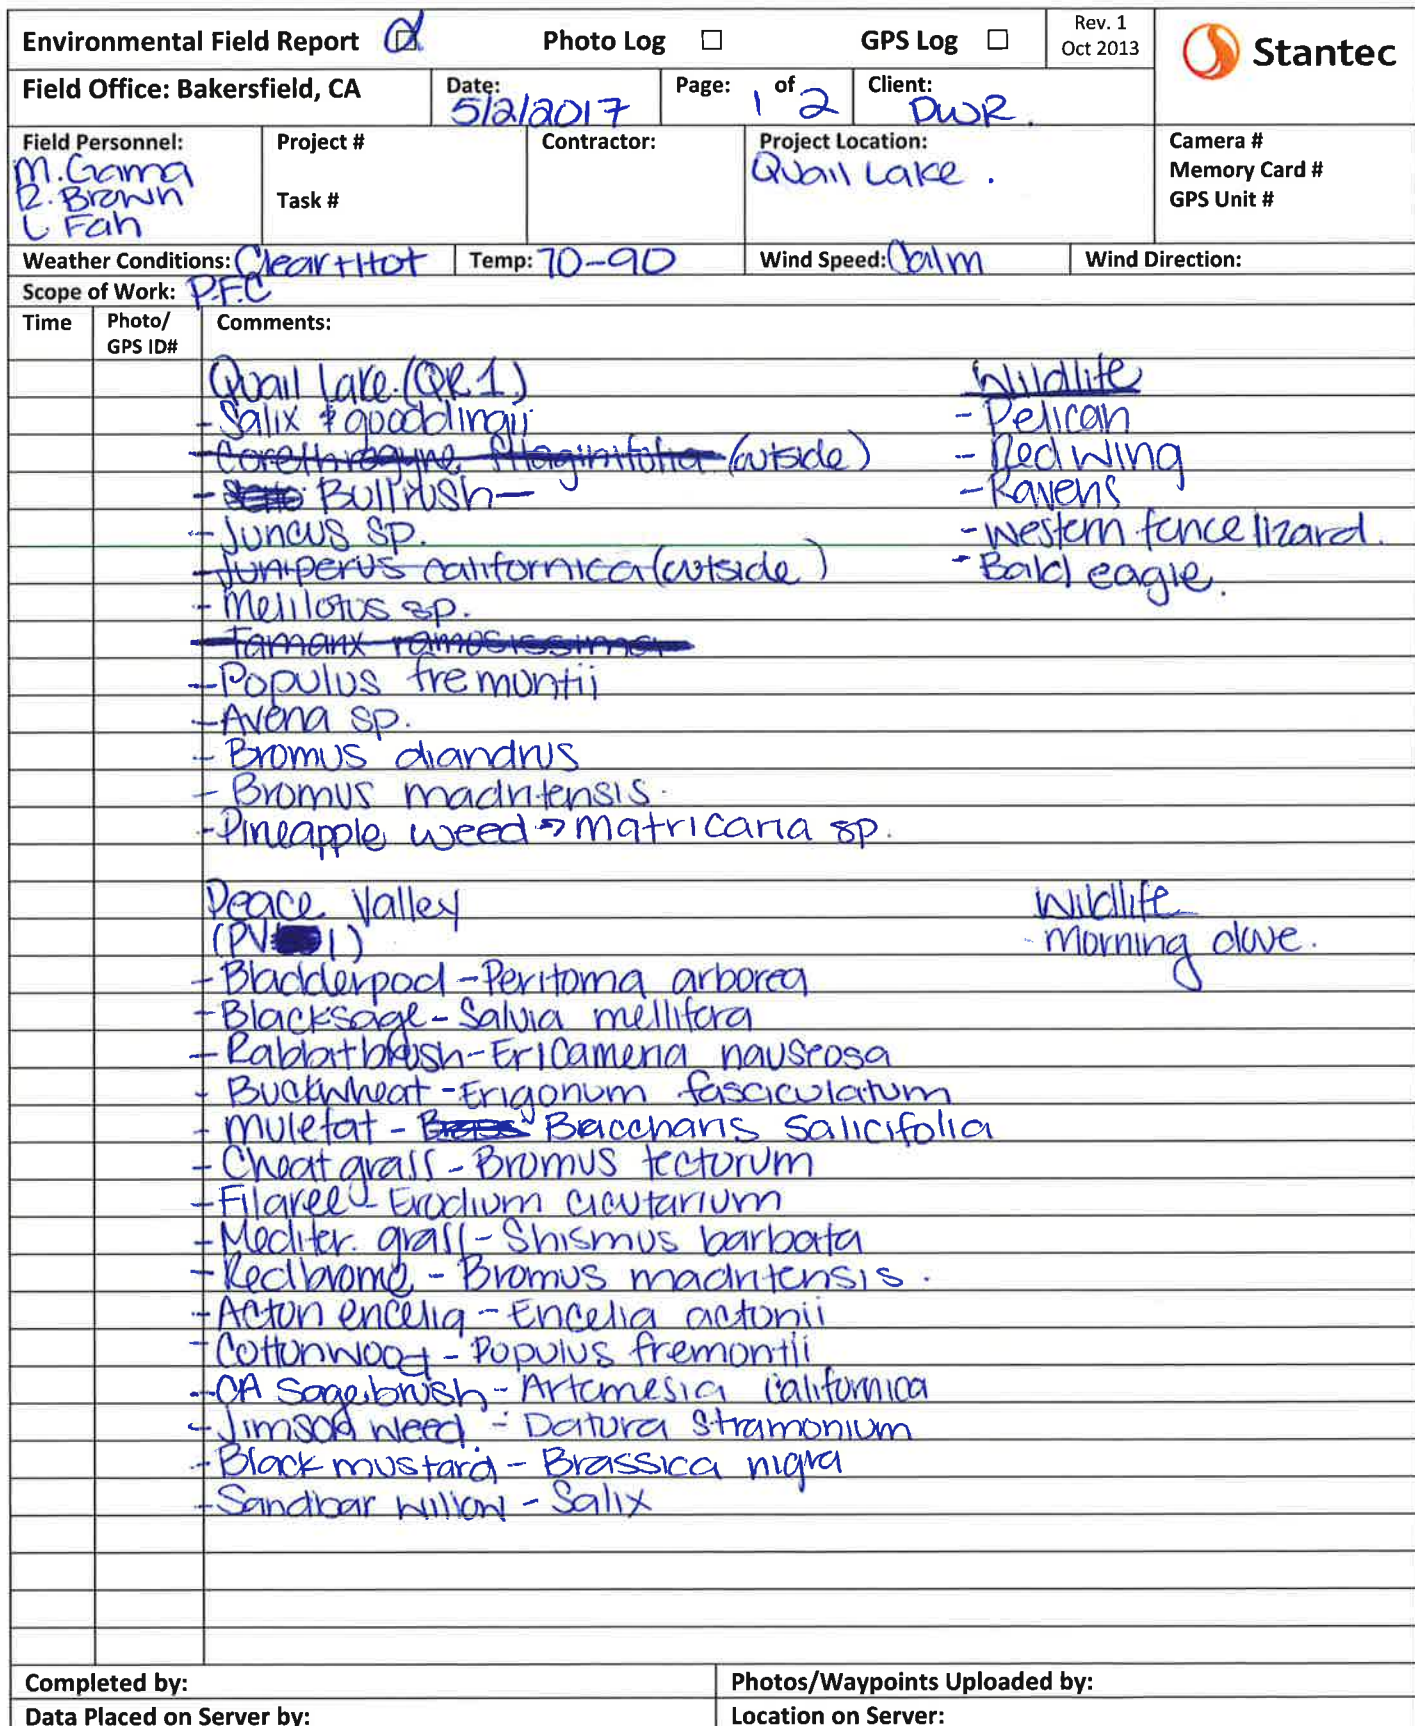 Environmental Field Report ☑ Photo Log ☐ GPS Log ☐ Rev. 1 Oct 2013 Stantec
Field Office: Bakersfield, CA Date: 5/2/2017 Page: 1 of 2 Client: DWR.
Field Personnel: M. Gama R. Brown L Fah
Project #
Task #
Contractor:
Project Location: Quail Lake .
Camera #
Memory Card #
GPS Unit #
Weather Conditions: Clear + Hot Temp: 70-90 Wind Speed: Calm Wind Direction:
Scope of Work: P.F.C
Time Photo/ GPS ID# Comments:
Quail Lake. (QR1)
- Salix gooddingii
- Corethrogyne filaginifolia (outside)
- Bullrush-
- Juncus sp.
- Juniperus californica (outside)
- Melilotus sp.
- Tamarix ramosissima
- Populus fremontii
- Avena sp.
- Bromus diandrus
- Bromus madritensis.
- Pineapple weed → Matricaria sp.
Wildlife
- Pelican
- Redwing
- Ravens
- Western fence lizard.
- Bald eagle.
Peace Valley
(PV 1)
- Bladderpod - Peritoma arborea
- Blacksage - Salvia mellifera
- Rabbitbrush - Ericameria nauseosa
- Buckwheat - Erigonum fasciculatum
- Mulefat - Baccharis salicifolia
- Cheatgrass - Bromus tectorum
- Filaree - Erodium cicutarium
- Mediter. grass - Shismus barbata
- Redbrome - Bromus madritensis.
- Acton encelia - Encelia actonii
- Cottonwood - Populus fremontii
- CA Sagebrush - Artemesia californica
- Jimson weed - Datura stramonium
- Black mustard - Brassica nigra
- Sandbar willow - Salix
Wildlife
- Morning dove.
Completed by: Photos/Waypoints Uploaded by:
Data Placed on Server by: Location on Server: